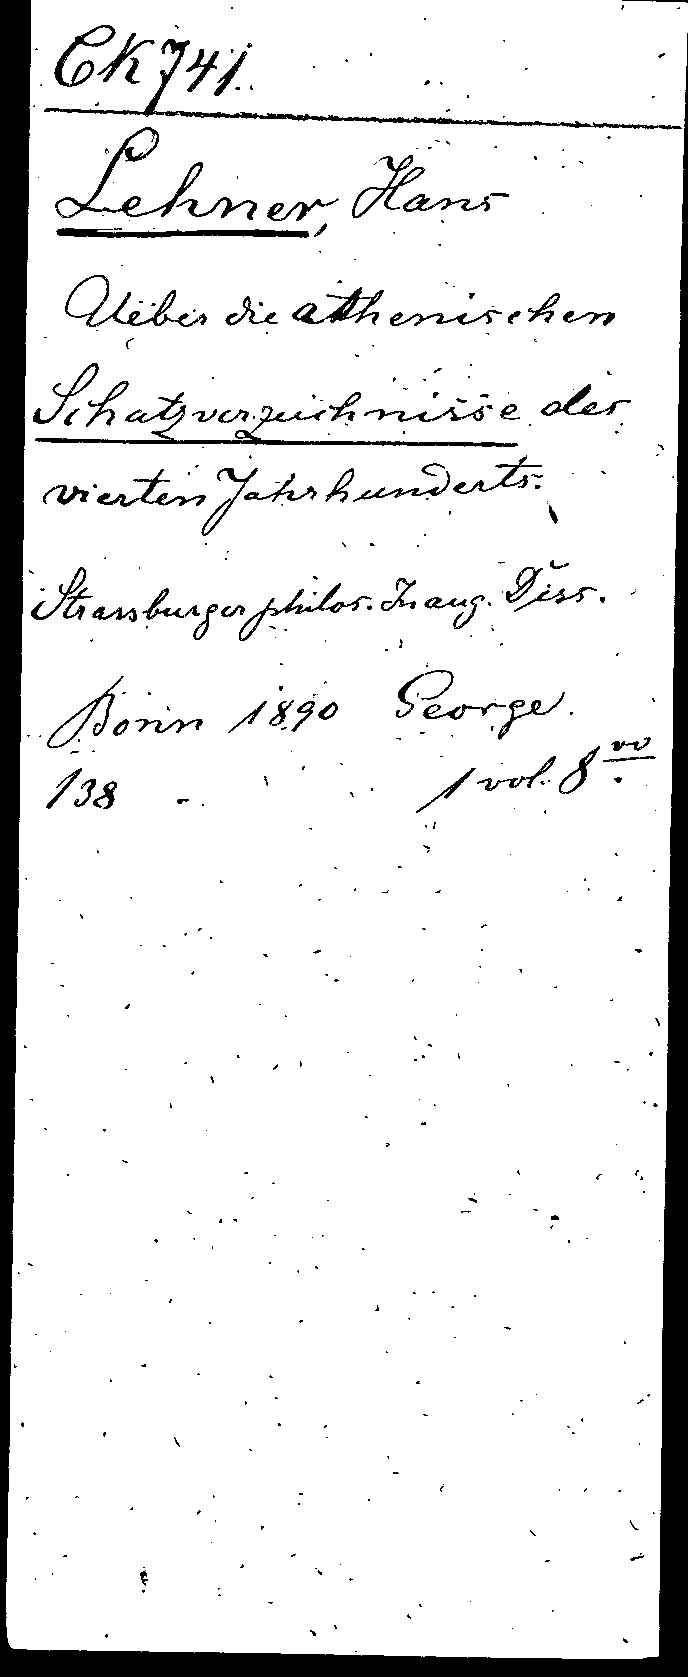 CK741.
Lehner, Hans
Ueber die athenischen
Schatzverzeichnisse des
vierten Jahrhunderts.
Strassburger philos. Inaug. Diss.
Bonn 1890 George.
138 - 1 vol. 8vo.